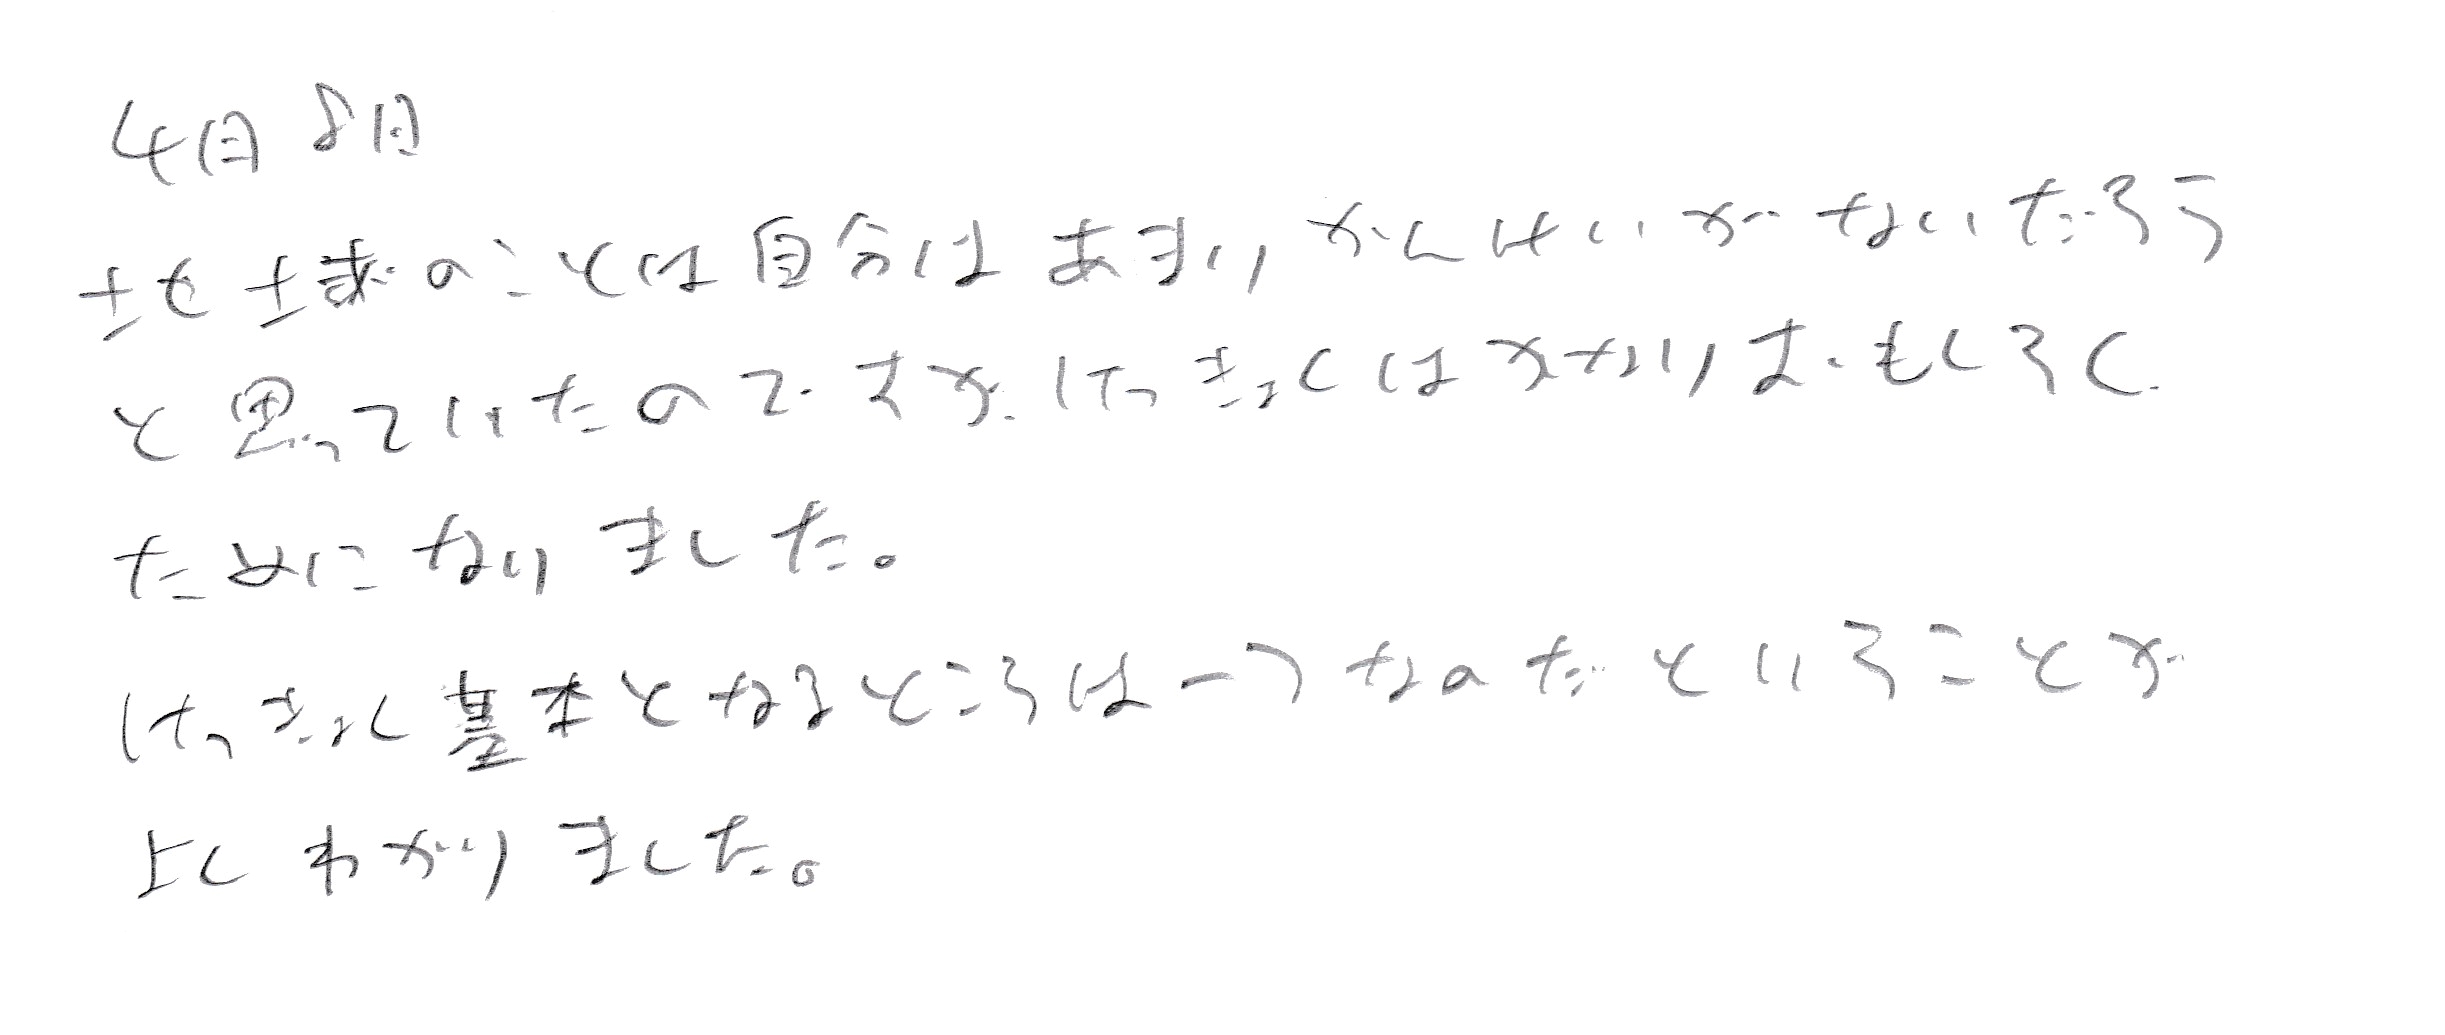 4月8日
地球のことは自分はあまりかんけいがないだろう
と思っていたのですが、けっきょくはかなりおもしろく
ためになりました。
けっきょく基本となるところは一つなのだということが
よくわかりました。